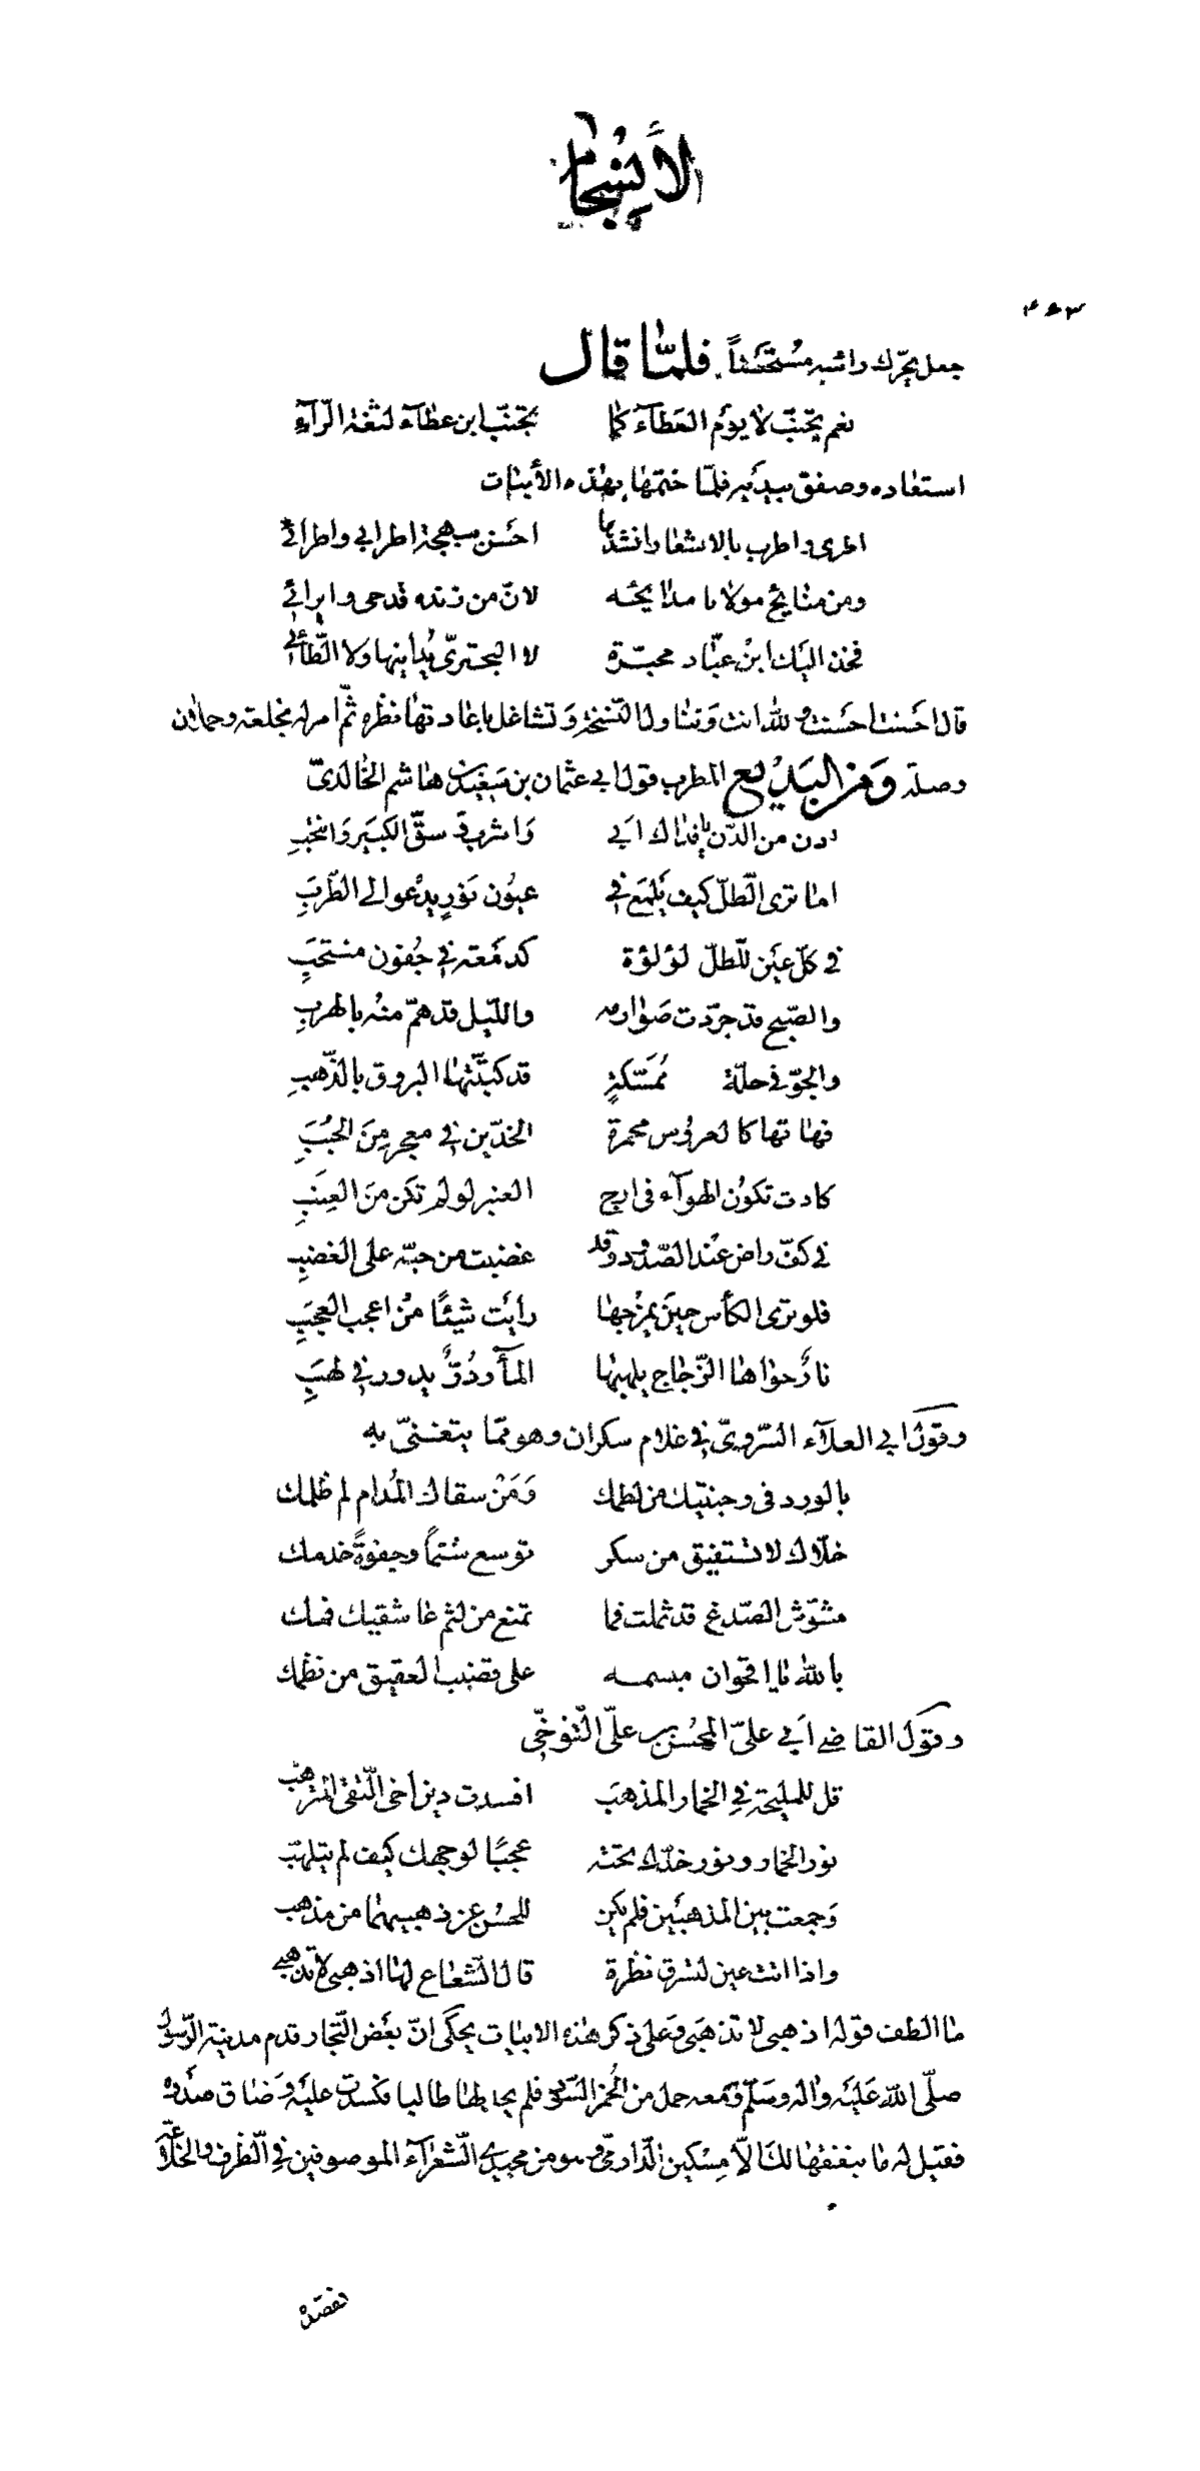 الانسجام
۴۶۳
جعل يحرّك رأسه مستحسناً فلمّا قال
نعم تجنّب لا يوم العطآء كما تجنّب ابن عطآء لثغة الرّآء
استعاده وصفق بيديه فلمّا ختمها بهذه الأبيات
اطرى واطرب بالاشعار انشدها احسن ببهجة اطرابي واطرائي
ومن منايح مولانا مدايحه لانّ من زنده قدحى وايرائي
فخذ اليك ابن عبّاد محبّرة لا البحتريّ يدانيها ولا الطّائي
قال احسنت احسنت ولله انت وتناولها لنسخه وتشاغل باعادتها نظره ثمّ امر له بخلعة وحملان
وصلة ومن البديع المطرب قول ابي عثمان بن سعيد بن هاشم الخالديّ
ادن من الدّن بي فداك ابي واشرب وسقّ الكبير وانتخب
اما ترى الطّلّ كيف يلمع في عيون نور يدعو الى الطّرب
في كلّ عين للطلّ لؤلؤة كدمعة في جفون منتحب
والصّبح قد جرّدت صوارمه واللّيل قد همّ منه بالهرب
والجوّ في حلّة ممسّكة قد كتبتها البروق بالذّهب
فهاتها كالعروس محمرة الخدّين في معجر من الحبب
كادت تكون الهوآء في ارج العنبر لو لم تكن من العنب
في كفّ راض عند الصّدود وقد غضبت من حبّه على الغضب
فلو ترى الكأس حين يمزجها رأيت شيئًا من اعجب العجب
نارٌ حواها الزّجاج يلهبها المآ ودُرٌّ يدور في لهب
وقول ابي العلآء السّرويّ في غلام سكران وهو ممّا يتغنّى به
بالورد في وجنتيك من لطمك ومن سقاك المدام لم ظلمك
خلّاك لا تستفيق من سكر توسع شتماً وجفوةً خدمك
مشوّش الصّدغ قد ثملت فما تمنع من لثم عاشقيك فمك
بالله يا اقحوان مبسمه على قضيب العقيق من نظمك
وقول القاضي ابي عليّ المحسّن بن عليّ التّنوخيّ
قل للمليحة في الخمار المذهب افسدت دين اخى التّقى المترهّب
نور الخمار ونور خدّك تحته عجبًا لوجهك كيف لم يتلهّب
وجمعت بين المذهبين فلم يكن للحسن عن ذهبيهما من مذهب
واذا اتت عين لتسرق نظرة قال الشّعاع لها اذهبى لا تذهبي
ما الطف قوله اذهبى لا تذهبى وعلى ذكر هذه الابيات يحكى انّ بعض التّجار قدم مدينة الرّسول
صلّى الله عليه واله وسلّم ومعه حمل من الخمر السّود فلم يجد لها طالبا فكسدت عليه وضاق صدره
فقيل له ما ينفقها لك الّا مسكين الدّارميّ وهو من مجيدي الشّعرآء الموصوفين في الظّرف والخلاعة
فقصده